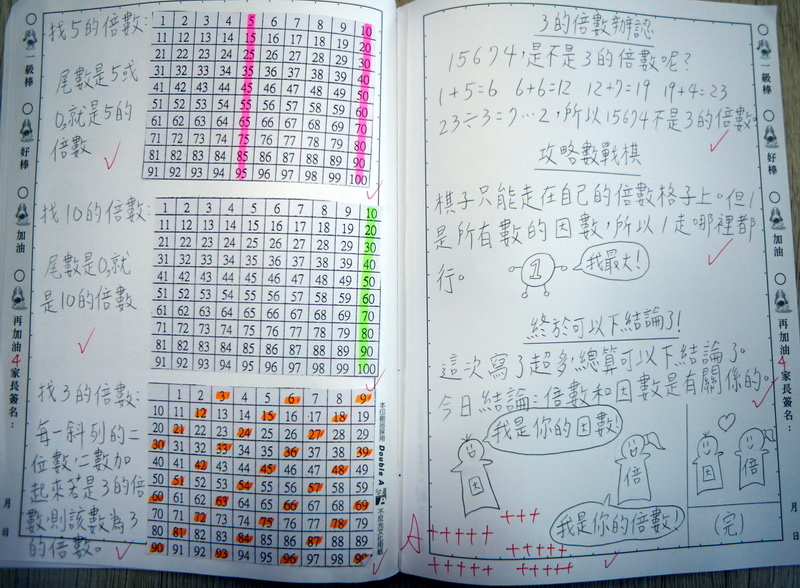 找5的倍數:
尾數是5或
0,就是5的
倍數
1 2 3 4 5 6 7 8 9 10
11 12 13 14 15 16 17 18 19 20
21 22 23 24 25 26 27 28 29 30
31 32 33 34 35 36 37 38 39 40
41 42 43 44 45 46 47 48 49 50
51 52 53 54 55 56 57 58 59 60
61 62 63 64 65 66 67 68 69 70
71 72 73 74 75 76 77 78 79 80
81 82 83 84 85 86 87 88 89 90
91 92 93 94 95 96 97 98 99 100
找10的倍數:
尾數是0,就
是10的倍數
1 2 3 4 5 6 7 8 9 10
11 12 13 14 15 16 17 18 19 20
21 22 23 24 25 26 27 28 29 30
31 32 33 34 35 36 37 38 39 40
41 42 43 44 45 46 47 48 49 50
51 52 53 54 55 56 57 58 59 60
61 62 63 64 65 66 67 68 69 70
71 72 73 74 75 76 77 78 79 80
81 82 83 84 85 86 87 88 89 90
91 92 93 94 95 96 97 98 99 100
找3的倍數:
每一斜列的二
位數,二數加
起來若是3的倍
數,則該數為3
的倍數。
1 2 3 4 5 6 7 8 9
10 11 12 13 14 15 16 17 18 19
20 21 22 23 24 25 26 27 28 29
30 31 32 33 34 35 36 37 38 39
40 41 42 43 44 45 46 47 48 49
50 51 52 53 54 55 56 57 58 59
60 61 62 63 64 65 66 67 68 69
70 71 72 73 74 75 76 77 78 79
80 81 82 83 84 85 86 87 88 89
90 91 92 93 94 95 96 97 98 99
Double A
一級棒
好棒
加油
再加油
4
家長簽名:
月
日
3的倍數辨認
15674,是不是3的倍數呢?
1+5=6 6+6=12 12+7=19 19+4=23
23÷3=7…2,所以15674不是3的倍數
攻略數戰棋
棋子只能走在自己的倍數格子上。但1
是所有數的因數,所以1走哪裡都
行。
1
我最大!
終於可以下結論了!
這次寫了超多,總算可以下結論了。
今日結論:倍數和因數是有關係的。
我是你的因數!
因
倍
我是你的倍數!
因 倍
(完)
A+++++
+++
+++++
+++++
+++++
一級棒
好棒
加油
再加油
4
家長簽名:
月
日